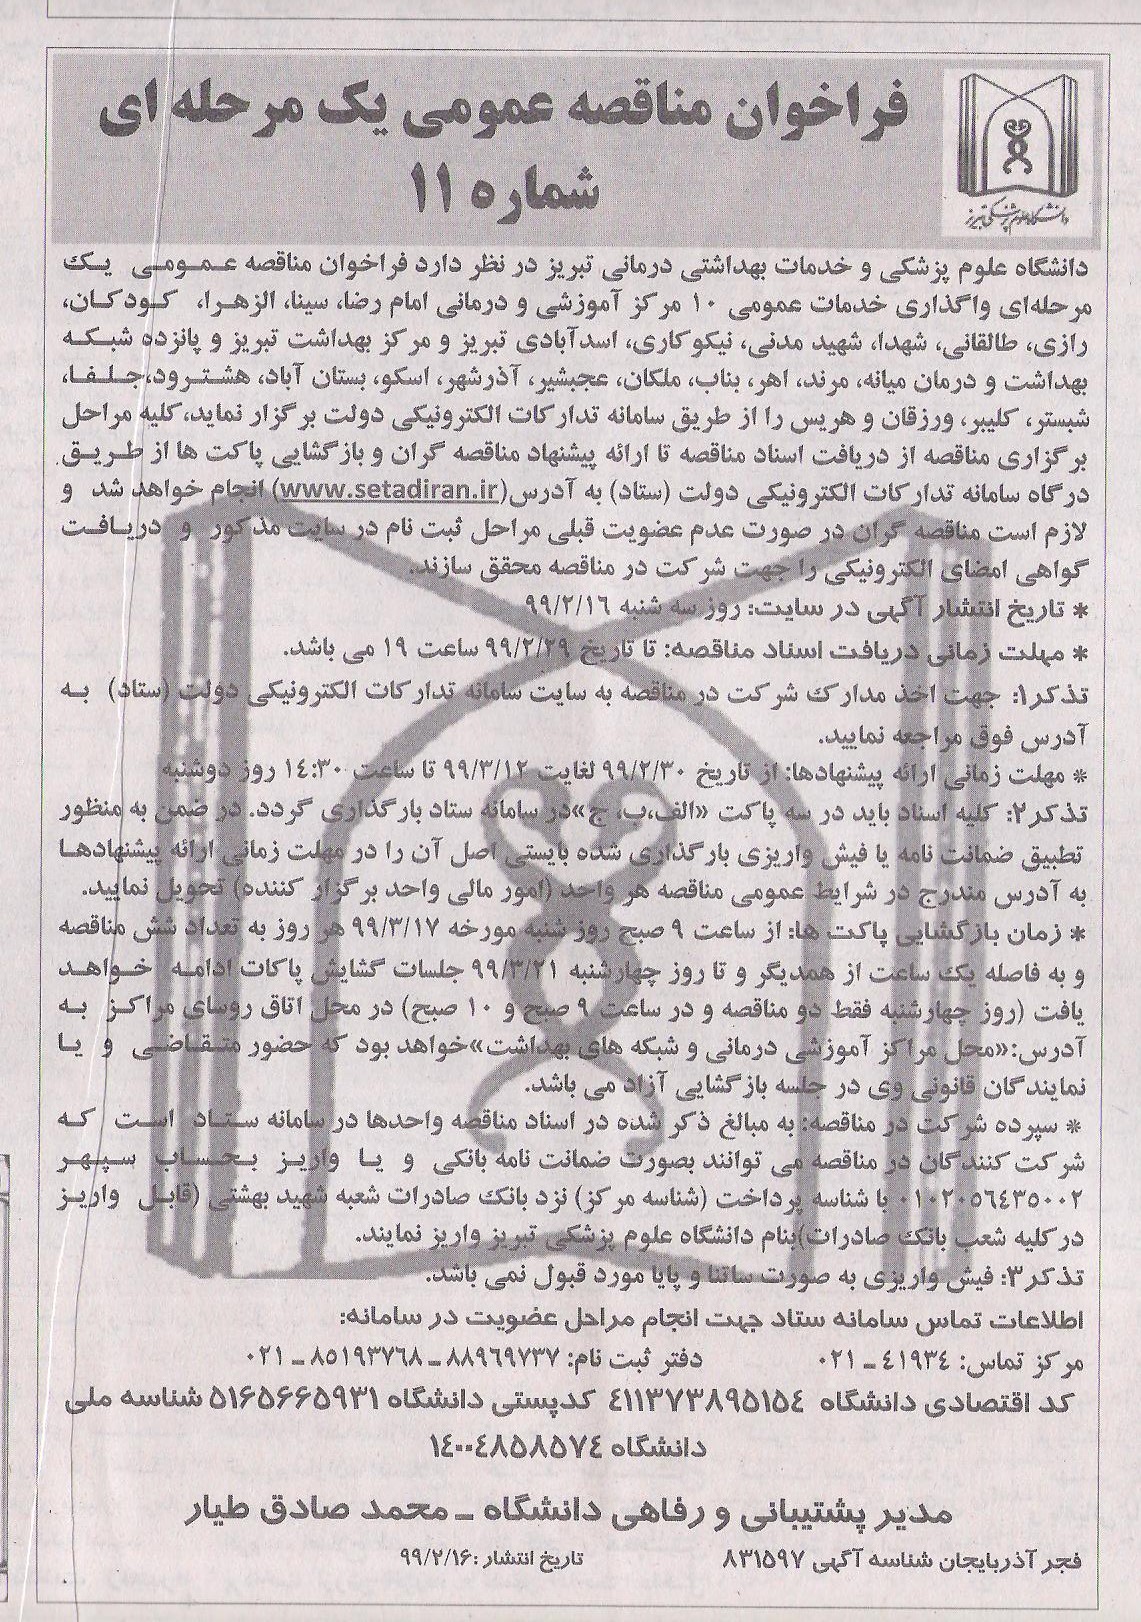 فراخوان مناقصه عمومی یک مرحله ای
شماره ۱۱
دانشگاه علوم پزشکی تبریز
دانشگاه علوم پزشکی و خدمات بهداشتی درمانی تبریز در نظر دارد فراخوان مناقصه عمومی یک
مرحله‌ای واگذاری خدمات عمومی ۱۰ مرکز آموزشی و درمانی امام رضا، سینا، الزهرا، کودکان،
رازی، طالقانی، شهدا، شهید مدنی، نیکوکاری، اسدآبادی تبریز و مرکز بهداشت تبریز و پانزده شبکه
بهداشت و درمان میانه، مرند، اهر، بناب، ملکان، عجبشیر، آذرشهر، اسکو، بستان آباد، هشترود،جلفا،
شبستر، کلیبر، ورزقان و هریس را از طریق سامانه تدارکات الکترونیکی دولت برگزار نماید، کلیه مراحل
برگزاری مناقصه از دریافت اسناد مناقصه تا ارائه پیشنهاد مناقصه گران و بازگشایی پاکت ها از طریق
درگاه سامانه تدارکات الکترونیکی دولت (ستاد) به آدرس(www.setadiran.ir) انجام خواهد شد و
لازم است مناقصه گران در صورت عدم عضویت قبلی مراحل ثبت نام در سایت مذکور و دریافت
گواهی امضای الکترونیکی را جهت شرکت در مناقصه محقق سازند.
* تاریخ انتشار آگهی در سایت: روز سه شنبه ۹۹/۲/۱۶
* مهلت زمانی دریافت اسناد مناقصه: تا تاریخ ۹۹/۲/۲۹ ساعت ۱۹ می باشد.
تذکر۱: جهت اخذ مدارک شرکت در مناقصه به سایت سامانه تدارکات الکترونیکی دولت (ستاد) به
آدرس فوق مراجعه نمایید.
* مهلت زمانی ارائه پیشنهادها: از تاریخ ۹۹/۲/۳۰ لغایت ۹۹/۳/۱۲ تا ساعت ۱۴:۳۰ روز دوشنبه
تذکر۲: کلیه اسناد باید در سه پاکت «الف،ب، ج»در سامانه ستاد بارگذاری گردد. در ضمن به منظور
تطبیق ضمانت نامه یا فیش واریزی بارگذاری شده بایستی اصل آن را در مهلت زمانی ارائه پیشنهادها
به آدرس مندرج در شرایط عمومی مناقصه هر واحد (امور مالی واحد برگزار کننده) تحویل نمایید.
* زمان بازگشایی پاکت ها: از ساعت ۹ صبح روز شنبه مورخه ۹۹/۳/۱۷ هر روز به تعداد شش مناقصه
و به فاصله یک ساعت از همدیگر و تا روز چهارشنبه ۹۹/۳/۲۱ جلسات گشایش پاکات ادامه خواهد
یافت (روز چهارشنبه فقط دو مناقصه و در ساعت ۹ صبح و ۱۰ صبح) در محل اتاق روسای مراکز به
آدرس:«محل مراکز آموزشی درمانی و شبکه های بهداشت»خواهد بود که حضور متقاضی و یا
نمایندگان قانونی وی در جلسه بازگشایی آزاد می باشد.
* سپرده شرکت در مناقصه: به مبالغ ذکر شده در اسناد مناقصه واحدها در سامانه ستاد است که
شرکت کنندگان در مناقصه می توانند بصورت ضمانت نامه بانکی و یا واریز بحساب سپهر
۰۱۰۲۰۵۶۴۳۵۰۰۲ با شناسه پرداخت (شناسه مرکز) نزد بانک صادرات شعبه شهید بهشتی (قابل واریز
در کلیه شعب بانک صادرات)بنام دانشگاه علوم پزشکی تبریز واریز نمایند.
تذکر۳: فیش واریزی به صورت ساتنا و پایا مورد قبول نمی باشد.
اطلاعات تماس سامانه ستاد جهت انجام مراحل عضویت در سامانه:
مرکز تماس: ۴۱۹۳۴ ـ ۰۲۱ دفتر ثبت نام: ۸۸۹۶۹۷۳۷ ـ ۸۵۱۹۳۷۶۸ ـ ۰۲۱
کد اقتصادی دانشگاه ۴۱۱۳۷۳۸۹۵۱۵۴ کدپستی دانشگاه ۵۱۶۵۶۶۵۹۳۱ شناسه ملی
دانشگاه ۱۴۰۰۴۸۵۸۵۷۴
مدیر پشتیبانی و رفاهی دانشگاه ـ محمد صادق طیار
فجر آذربایجان شناسه آگهی ۸۳۱۵۹۷ تاریخ انتشار :۹۹/۲/۱۶